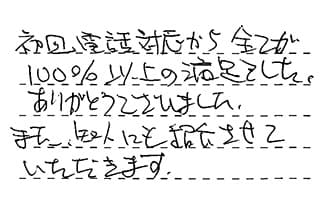 初回電話対応から全てが
100%以上の満足でした。
ありがとうございました。
また、知人にも紹介させて
いただきます。